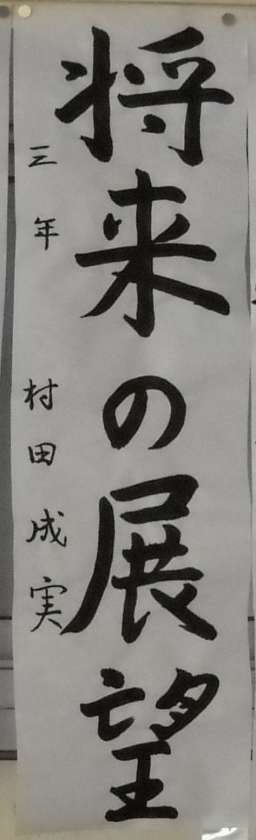 将来の展望
三年 村田成実